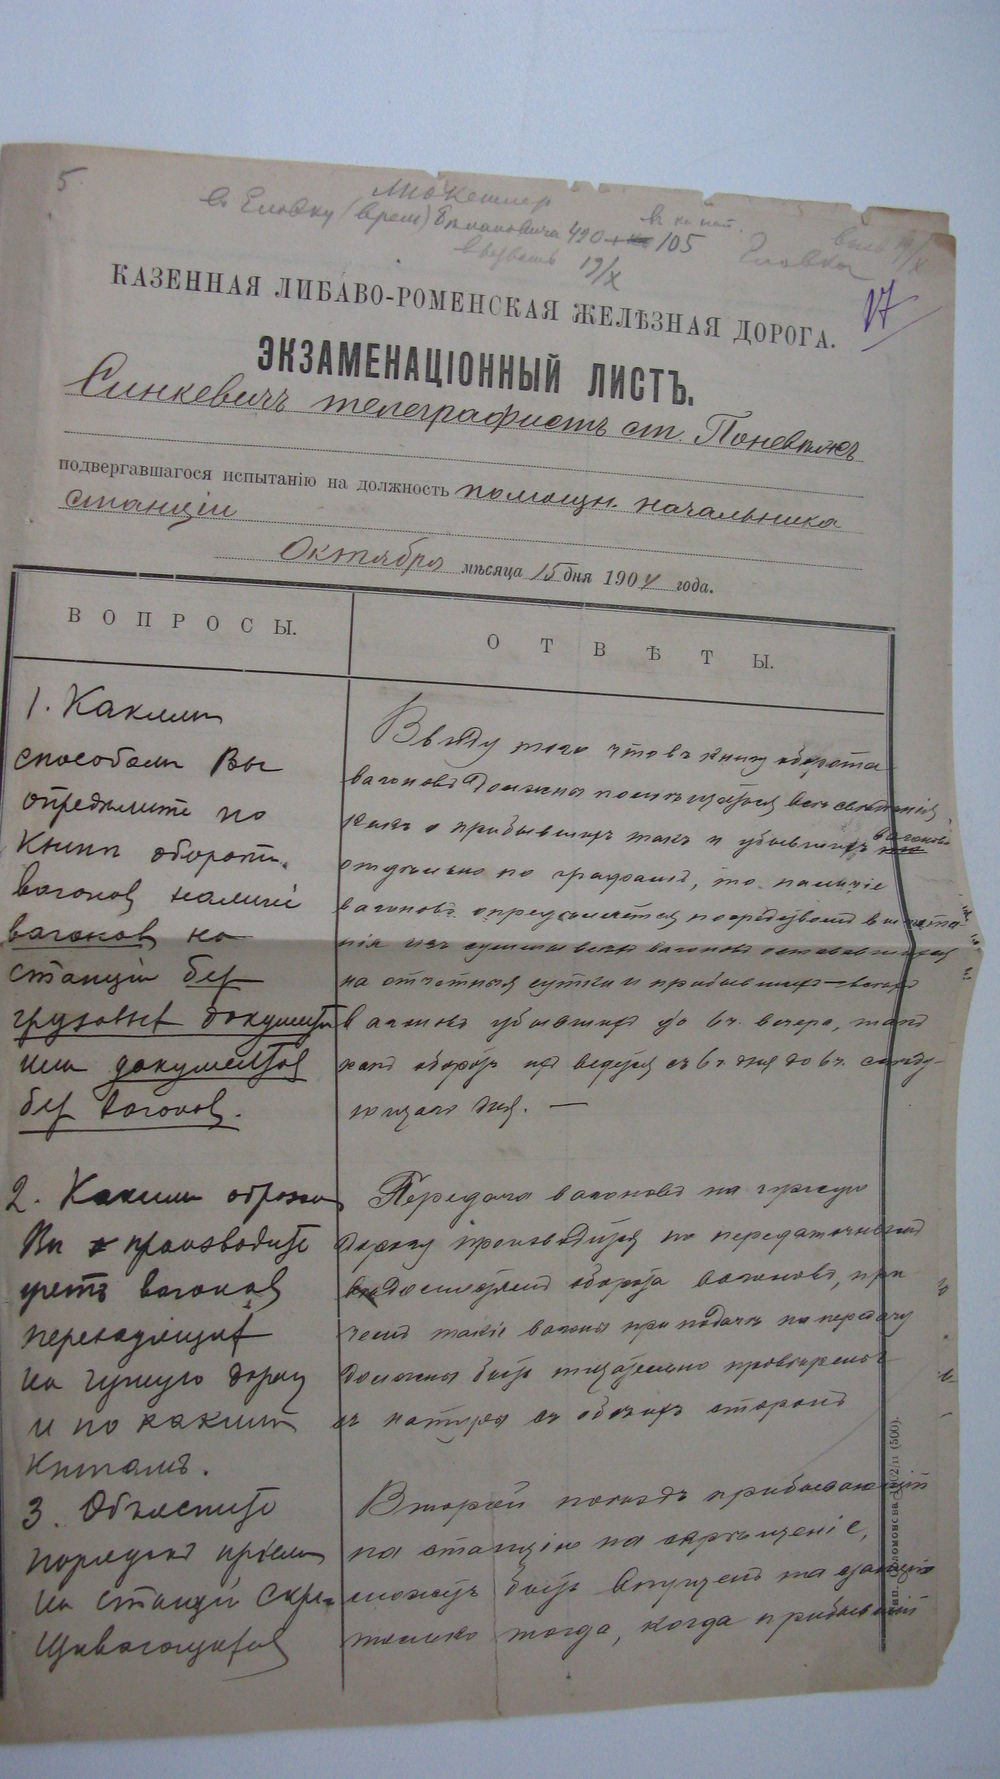 5
въ Еловку (врем)
420 105
Еловка
19/X
17
КАЗЕННАЯ ЛИБАВО-РОМЕНСКАЯ ЖЕЛѢЗНАЯ ДОРОГА.
ЭКЗАМЕНАЦІОННЫЙ ЛИСТЪ.
Синкевичъ телеграфистъ ст. Поневѣжъ
подвергавшагося испытанію на должность помощн. начальника
станціи
Октября мѣсяца 15 дня 1904 года.
ВОПРОСЫ.
ОТВѢТЫ.
1. Какими
способами Вы
опредѣлите по
книгѣ оборота
вагоновъ наличіе
вагоновъ на
станціи безъ
грузовыхъ документовъ
или документовъ
безъ вагоновъ.
Ввиду того что въ книгу оборота
вагоновъ должны помѣщаться всѣ свѣдѣнія
какъ о прибывшихъ такъ и убывшихъ вагоновъ
отдѣльно по графамъ, то наличіе
вагоновъ опредѣляется посредствомъ вычита-
нія изъ суммы всѣхъ вагоновъ остававшихся
на отчетныя сутки и прибывшихъ
вагоновъ убывшихъ до 6 ч. вечера, такъ
какъ оборотъ ихъ ведется съ 6 ч. дня до 6 ч. слѣду-
ющаго дня. —
2. Какимъ образомъ
Вы производите
учетъ вагоновъ
переходящихъ
на чужую дорогу
и по какимъ
книгамъ.
Передача вагоновъ на чужую
дорогу производится по передаточнымъ
вѣдомостямъ оборота вагоновъ, при
чемъ такіе вагоны при подачѣ на передачу
должны быть тщательно провѣрены
съ натуры съ обѣихъ сторонъ
3. Объясните
порядокъ пріема
на станціи скре-
щивающихся
Второй поѣздъ прибывающій
на станцію на скрещеніе,
можетъ быть впущенъ на станцію
только тогда, когда прибывшій